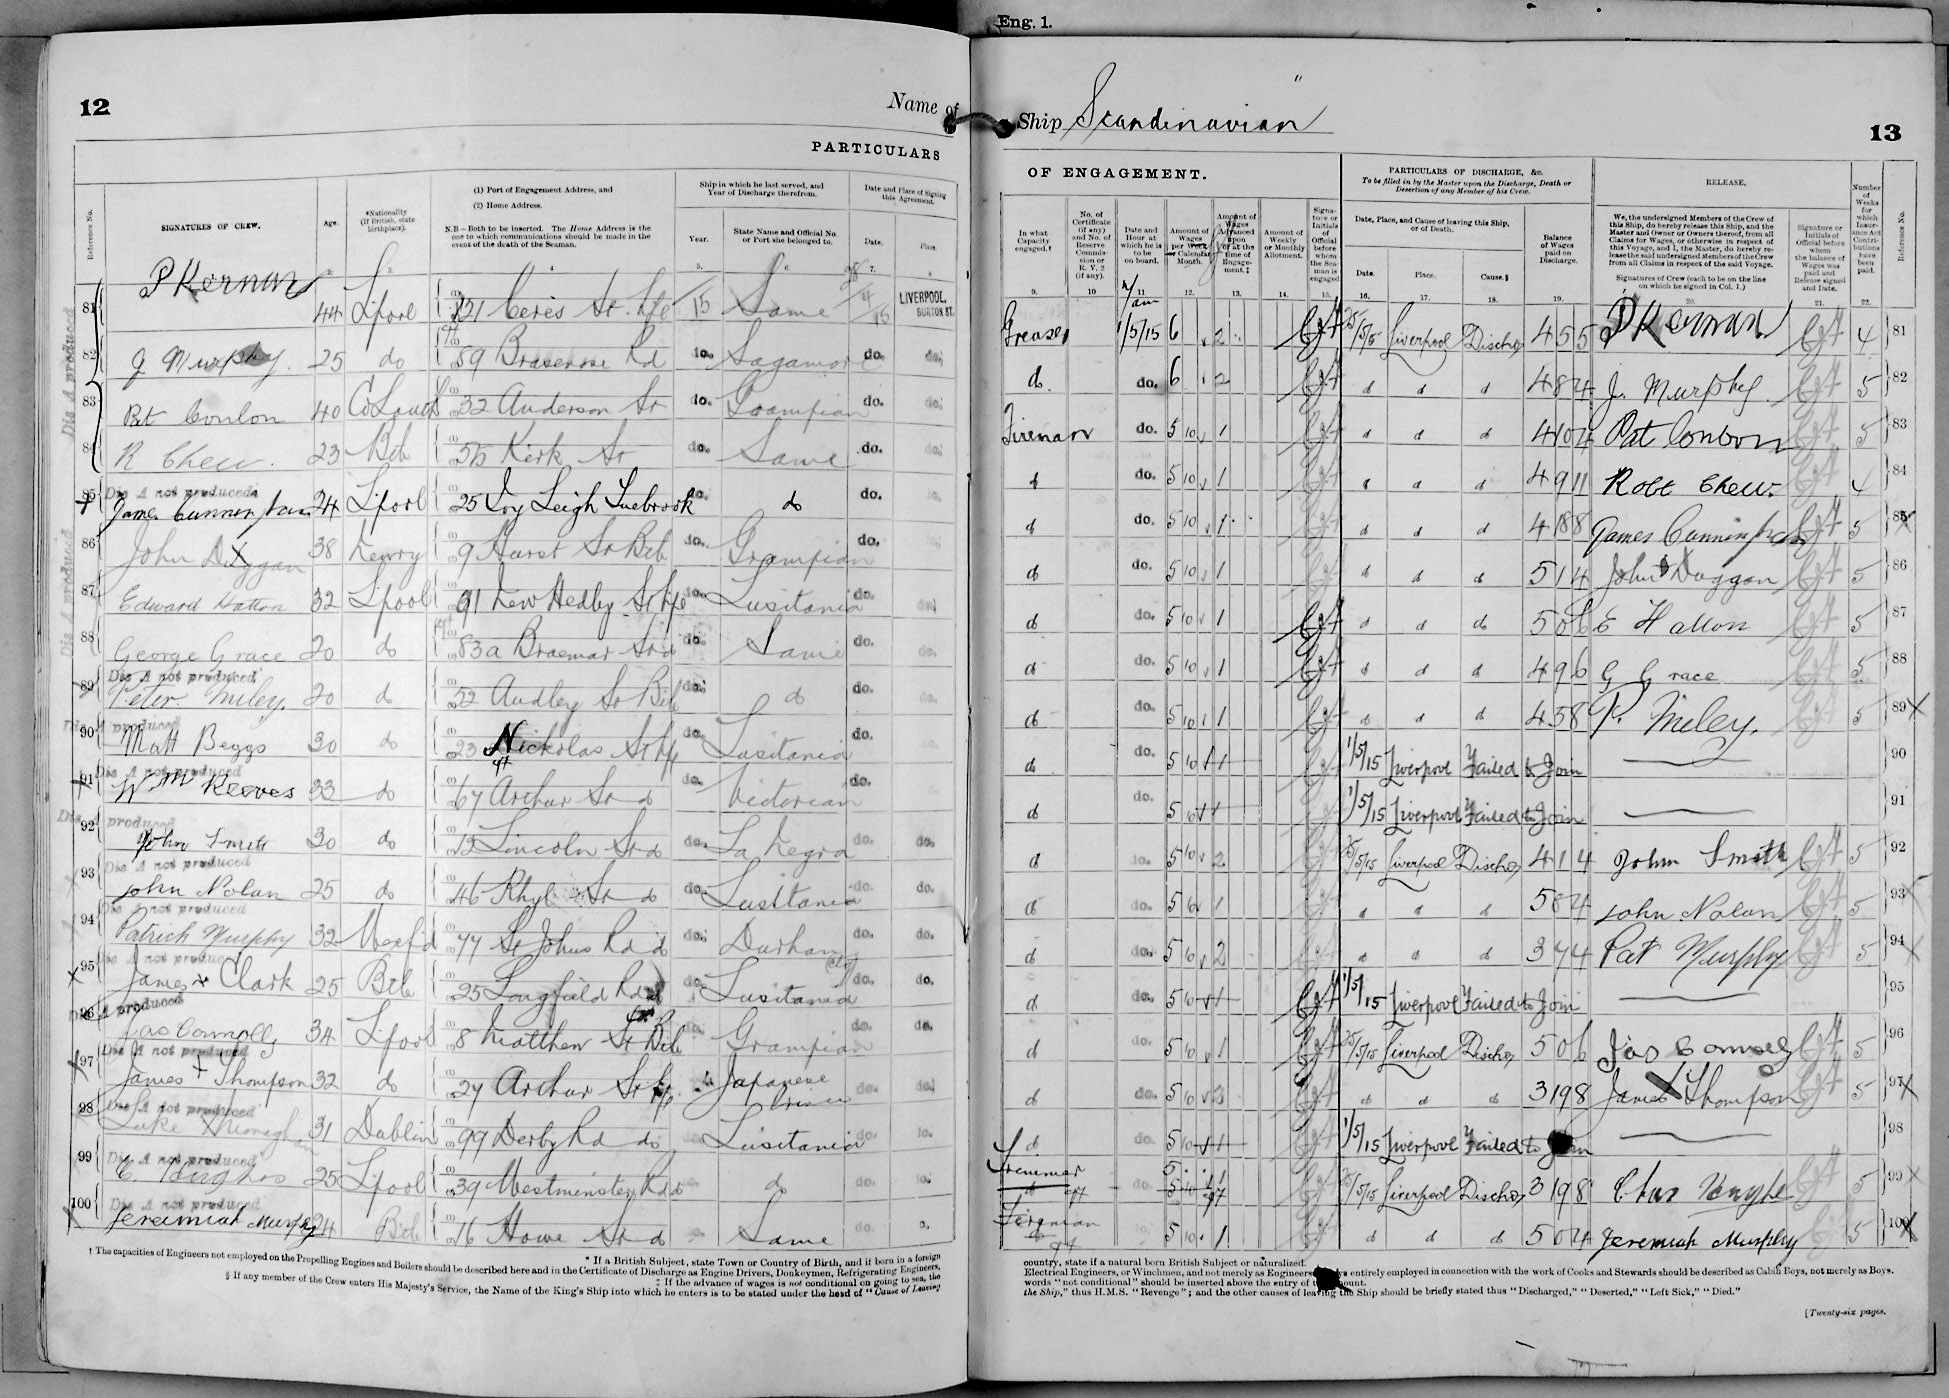 Eng. 1.
12
Name of
Ship Scandinavian
13
PARTICULARS
OF ENGAGEMENT.
Reference No.
SIGNATURES OF CREW.
Age.
*Nationality (If British, state birthplace).
(1) Port of Engagement Address, and
(2) Home Address.
N.B—Both to be inserted. The Home Address is the one to which communications should be made in the event of the death of the Seaman.
Ship in which he last served, and Year of Discharge therefrom.
Year.
State Name and Official No. or Port she belonged to.
Date and Place of Signing this Agreement.
Date.
Place.
In what Capacity engaged.†
No. of Certificate (if any) and No. of Reserve Commission or R. V. 2 (if any).
Date and Hour at which he is to be on board.
Amount of Wages per Week or Calendar Month.
Amount of Wages Advanced upon or at the time of Engagement.‡
Amount of Weekly or Monthly Allotment.
Signature or Initials of Official before whom the Seaman is engaged
PARTICULARS OF DISCHARGE, &c.
To be filled in by the Master upon the Discharge, Death or Desertion of any Member of his Crew.
Date, Place, and Cause of leaving this Ship, or of Death.
Date.
Place.
Cause.§
Balance of Wages paid on Discharge.
RELEASE.
We, the undersigned Members of the Crew of this Ship, do hereby release this Ship, and the Master and Owner or Owners thereof, from all Claims for Wages, or otherwise in respect of this Voyage, and I, the Master, do hereby release the said undersigned Members of the Crew from all Claims in respect of the said Voyage.
Signatures of Crew (each to be on the line on which he signed in Col. 1.)
Signature or Initials of Official before whom the balance of Wages was paid and Release signed and Date.
Number of Weeks for which Insurance Act Contributions have been paid.
Reference No.
81 P Kernan 44 Lpool 121 Ceres St. Lpl 15 Same 28/4/15 LIVERPOOL, BURTON ST. Greaser 7 am 1/5/15 6 2 25/5/15 Liverpool Dischg 4 5 5 P Kernan 4 81
82 J Murphy. 25 do 89 Brasenose Rd do. Sagamore do. do. d. do. 6 2 d d d 4 8 4 J. Murphy 5 82
83 Pat Conlon 40 Co Louth 32 Anderson St do. Grampian do. do. Fireman do. 5 10 1 d d d 4 10 4 Pat Conlon 5 83
84 R Chew. 23 Bib 55 Kirk St do. Same do. do. d do. 5 10 1 d d d 4 9 11 Robt Chew. 4 84
85 Dis A not produced James Cunningham 24 Lpool 25 Ivy Leigh Tuebrook do. do do. d do. 5 10 1 d d d 4 18 8 James Cunningham 5 85
86 John Duggan 38 Newry 9 Hurst St Bib do. Grampian do. d do. 5 10 1 d d d 5 1 4 John Duggan 5 86
87 Edward Hatton 32 Lpool 91 New Hedley St Lpl Lusitania do. do. d do. 5 10 1 d d d 5 0 6 E Hatton 5 87
88 George Grace 20 do 83a Braemar St d do. Same do. do. d do. 5 10 1 d d d 4 9 6 G Grace 5 88
89 Dis A not produced Peter Miley. 20 d 22 Audley St Bib do. d do. do. d do. 5 10 1 d d d 4 5 8 P. Miley. 5 89
90 Dis A produced Matt Beggs 30 do 23 Nickolas St Lpl Lusitania do. d do. 5 10 1 1/5/15 Liverpool Failed to Join 90
91 Dis A not produced Wm Reeves 33 do 67 Arthur St d do. Victorian do. d do. 5 10 1 1/5/15 Liverpool Failed to Join 91
92 Dis A produced John Smith 30 do 12 Lincoln St d do. La Negra do. do. d do. 5 10 2 25/5/15 Liverpool Dischg 4 1 4 John Smith 5 92
93 Dis A not produced John Nolan 25 do 46 Rhyl St d do. Lusitania do. do. d do. 5 10 1 d d d 5 0 4 John Nolan 5 93
94 Dis A not produced Patrick Murphy 32 Wexf'd 77 St Johns Rd d do. Durham City do. do. d do. 5 10 2 d d d 3 7 4 Pat Murphy 5 94
95 Dis A not produced James Clark 25 Bib 25 Longfield Rd d do. Lusitania do. do. d do. 5 10 1 1/5/15 Liverpool Failed to Join 95
96 Dis A produced Jas Connolly 34 Lpool 8 Matthew St Bib do. Grampian do. do. d do. 5 10 1 25/5/15 Liverpool Dischg 5 0 6 Jas Connolly 5 96
97 Dis A not produced James Thompson 32 do 27 Arthur St Lpl Japanese Prince do. do. d do. 5 10 2 d d d 3 19 8 James Thompson 5 97
98 Dis A not produced Luke 31 Dublin 99 Derby Rd do Lusitania do. do. d do. 5 10 1 1/5/15 Liverpool Failed to Join 98
99 Dis A not produced C. 25 Lpool 39 Westminster Rd d d do. do. Trimmer d 5 1 5 10 1 25/5/15 Liverpool Dischg 3 19 8 Chas 5 99
100 Dis A not produced Jeremiah Murphy 24 Bib 16 Howe St d Same do. Fireman 5 10 1 d d d 5 0 4 Jeremiah Murphy 5 100
Dis A produced
Dis A produced
† The capacities of Engineers not employed on the Propelling Engines and Boilers should be described here and in the Certificate of Discharge as Engine Drivers, Donkeymen, Refrigerating Engineers,
* If a British Subject, state Town or Country of Birth, and if born in a foreign
‡ If the advance of wages is not conditional on going to sea, the
§ If any member of the Crew enters His Majesty's Service, the Name of the King's Ship into which he enters is to be stated under the head of "Cause of Leaving
country, state if a natural born British Subject or naturalized.
Electrical Engineers, or Winchmen, and not merely as Engineers entirely employed in connection with the work of Cooks and Stewards should be described as Cabin Boys, not merely as Boys.
words "not conditional" should be inserted above the entry of the amount.
the Ship," thus H.M.S. "Revenge"; and the other causes of leaving the Ship should be briefly stated thus "Discharged," "Deserted," "Left Sick," "Died."
[Twenty-six pages.